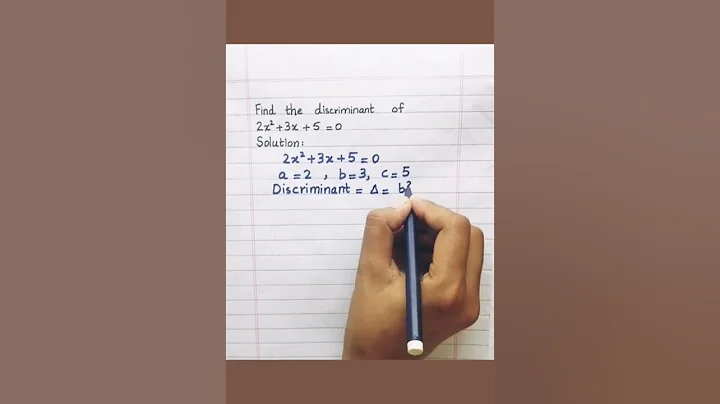 Find the discriminant of
2x²+3x+5=0
Solution:
2x²+3x+5=0
a=2, b=3, c=5
Discriminant = Δ = b²